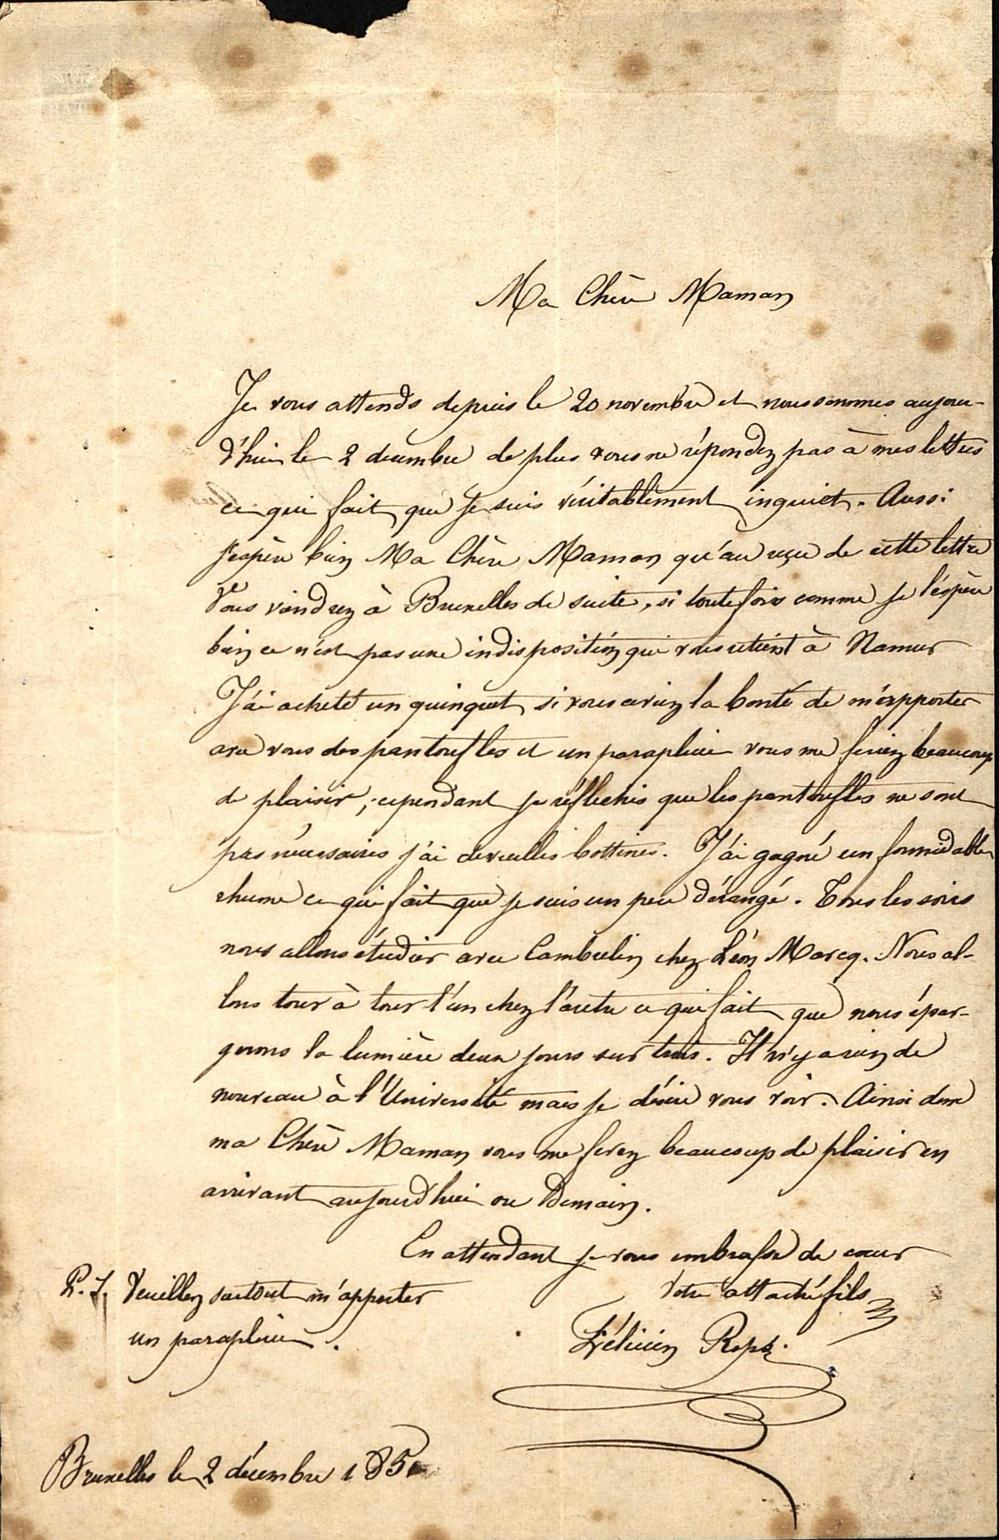 Ma Chère Maman
Je vous attends depuis le 20 novembre et nous sommes aujour-
d'hui le 2 décembre de plus vous ne répondez pas à mes lettres
ce qui fait que je suis véritablement inquiet. Aussi
j'espère bien Ma Chère Maman qu'au reçu de cette lettre
Vous viendrez à Bruxelles de suite, si toutefois comme je l'espère
bien ce n'est pas une indisposition qui vous retient à Namur
J'ai acheté un quinquet, si vous aviez la bonté de m'apporter
avec vous des pantoufles et un parapluie vous me feriez beaucoup
de plaisir, cependant je réfléchis que les pantoufles ne sont
pas nécessaires j'ai de vieilles bottines. J'ai gagné un formidable
rhume ce qui fait que je suis un peu dérangé. Tous les soirs
nous allons étudier avec Cambrelin chez Léon Marcq. Nous al-
lons tour à tour l'un chez l'autre ce qui fait que nous épar-
gnons la lumière deux jours sur trois. Il n'y a rien de
nouveau à l'Université mais je désire vous voir. Ainsi donc
ma Chère Maman vous me ferez beaucoup de plaisir en
arrivant aujourd'hui ou Demain.
En attendant je vous embrasse de cœur
Votre attaché fils
Félicien Rops.
P.S. Veuillez surtout m'apporter
un parapluie.
Bruxelles le 2 décembre